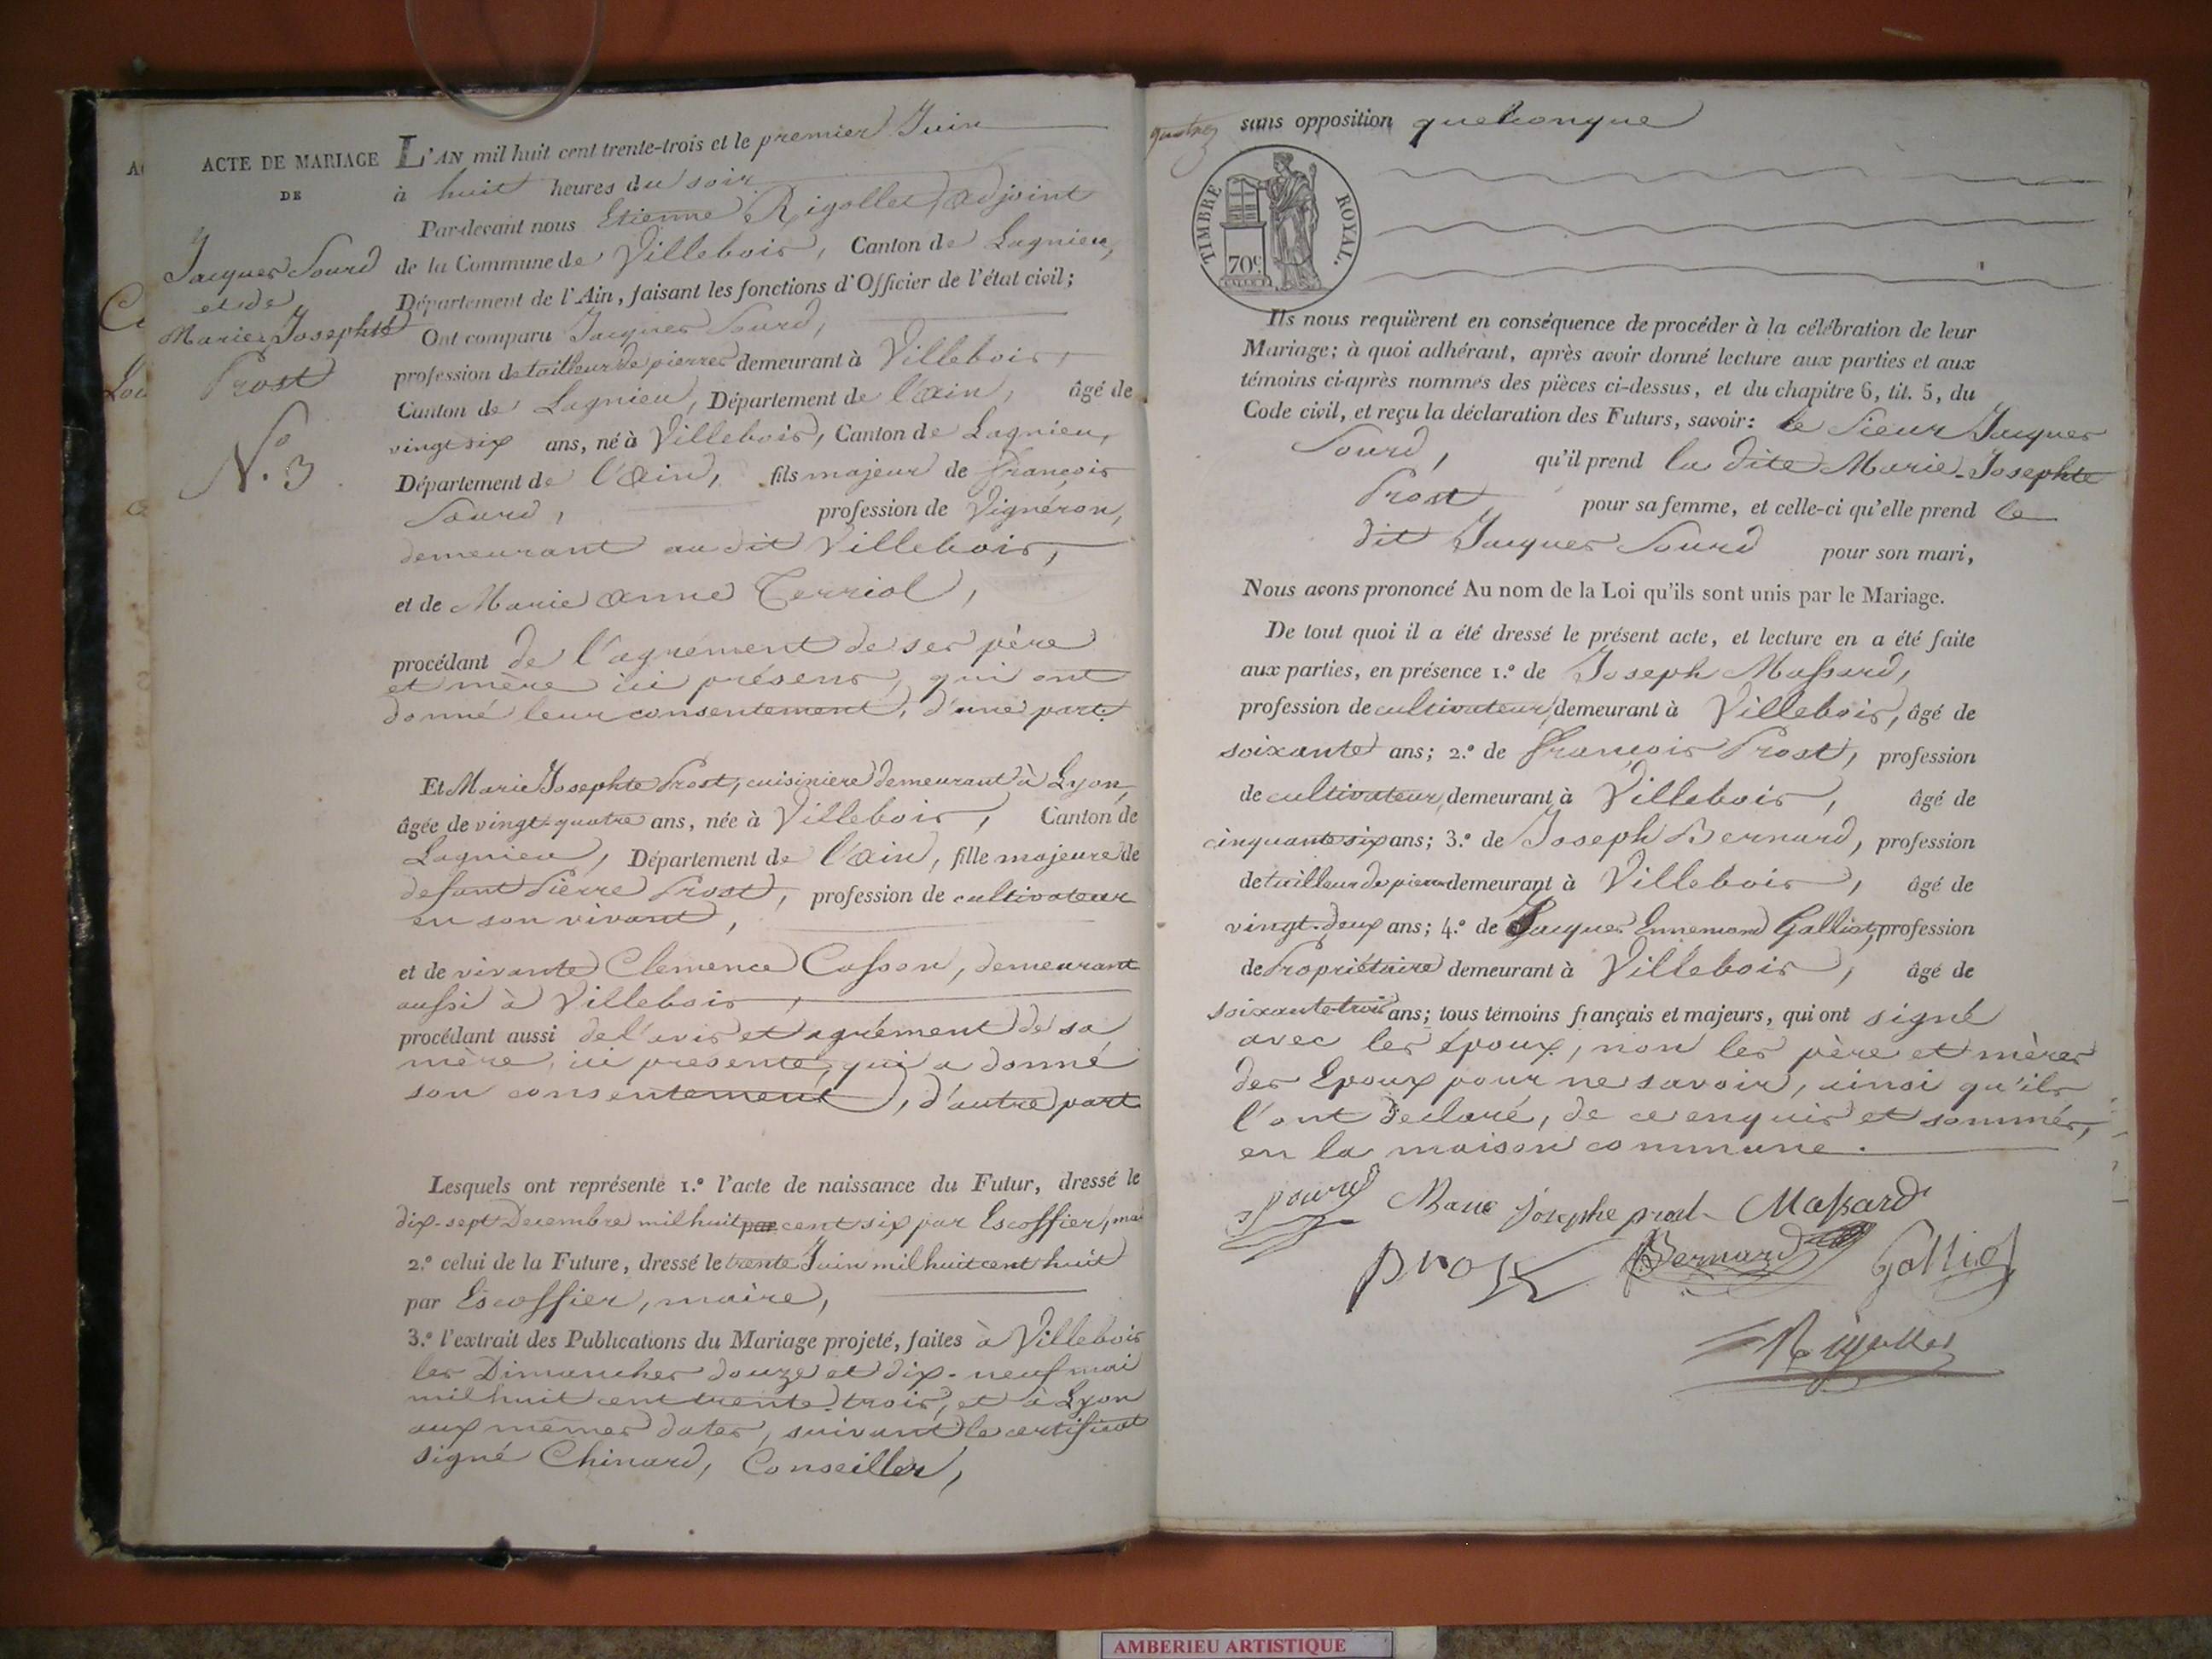 ACTE DE MARIAGE
DE
Jacques Sourd
et de
Marie Josephte
Prost
N.º 3
L'AN mil huit cent trente-trois et le premier Juin
à huit heures du soir
Par-devant nous Etienne Rigollet, adjoint
de la Commune de Villebois, Canton de Lagnieu,
Département de l'Ain, faisant les fonctions d'Officier de l'état civil;
Ont comparu Jacques Sourd,
profession de tailleur de pierres demeurant à Villebois,
Canton de Lagnieu, Département de l'Ain, âgé de
vingt six ans, né à Villebois, Canton de Lagnieu,
Département de l'Ain, fils majeur de François
Sourd, profession de Vignéron,
demeurant au dit Villebois,
et de Marie Anne Terriol,
procédant de l'agrément de ses père
et mère ici présens, qui ont
donné leur consentement, d'une part.
Et Marie Josephte Prost, cuisinière demeurant à Lyon,
âgée de vingt-quatre ans, née à Villebois, Canton de
Lagnieu, Département de l'Ain, fille majeure de
defunt Pierre Prost, profession de cultivateur
en son vivant,
et de vivante Clemence Casson, demeurant
aussi à Villebois,
procédant aussi de l'avis et agrément de sa
mère, ici présente, qui a donné
son consentement, d'autre part
Lesquels ont représenté 1.º l'acte de naissance du Futur, dressé le
dix-sept Decembre mil huit par cent six par Escoffier, mai
2.º celui de la Future, dressé le trente Juin mil huit cent huit
par Escoffier, maire,
3.º l'extrait des Publications du Mariage projeté, faites à Villebois
les Dimanches douze et dix-neuf mai
mil huit cent trente-trois, et à Lyon
aux mêmes dates, suivant le certificat
signé Chinard, Conseiller,
sans opposition quelconque
TIMBRE ROYAL.
70c
Ils nous requièrent en conséquence de procéder à la célébration de leur
Mariage; à quoi adhérant, après avoir donné lecture aux parties et aux
témoins ci-après nommés des pièces ci-dessus, et du chapitre 6, tit. 5, du
Code civil, et reçu la déclaration des Futurs, savoir: le Sieur Jacques
Sourd, qu'il prend la dite Marie-Josephte
Prost pour sa femme, et celle-ci qu'elle prend le
dit Jacques Sourd pour son mari,
Nous avons prononcé Au nom de la Loi qu'ils sont unis par le Mariage.
De tout quoi il a été dressé le présent acte, et lecture en a été faite
aux parties, en présence 1.º de Joseph Massard,
profession de cultivateur, demeurant à Villebois, âgé de
soixante ans; 2.º de François Prost, profession
de cultivateur, demeurant à Villebois, âgé de
cinquante six ans; 3.º de Joseph Bernard, profession
de tailleur de pierre demeurant à Villebois, âgé de
vingt-deux ans; 4.º de Jacques Ennemond Galliot, profession
de Propriétaire demeurant à Villebois, âgé de
soixante-trois ans; tous témoins français et majeurs, qui ont signé
avec les époux, non les père et mères
des Epoux pour ne savoir, ainsi qu'ils
l'ont déclaré, de ce enquis et sommés,
en la maison commune.
Sourd Marie Josephe prost Massard
prost Bernard Galliot
Rigollet
AMBERIEU ARTISTIQUE